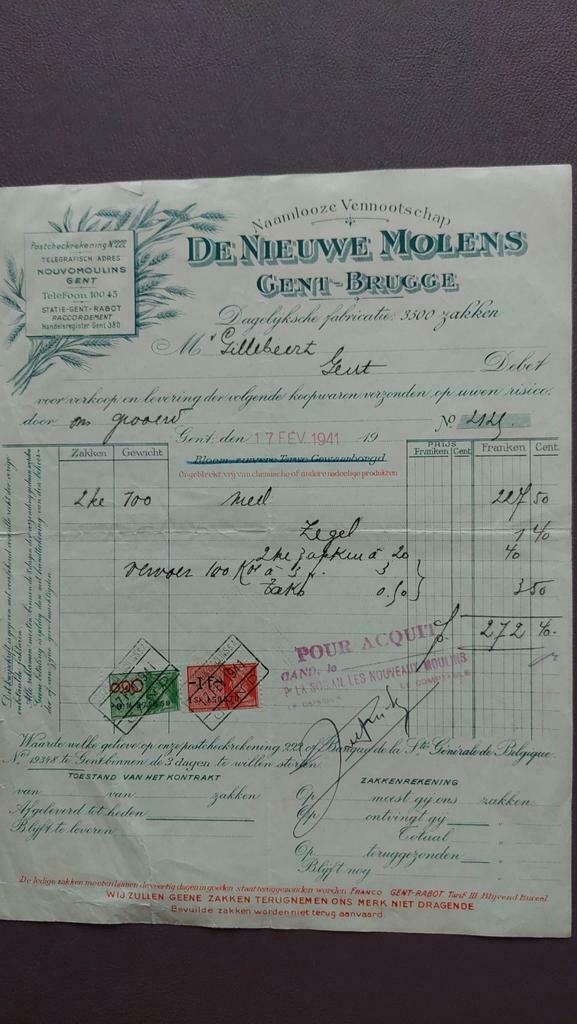 Naamlooze Vennootschap
DE NIEUWE MOLENS
GENT-BRUGGE
Postcheckrekening Nº 222
TELEGRAFISCH ADRES
NOUVOMOULINS
GENT
Telefoon 100.43
STATIE-GENT-RABOT
RACCORDEMENT
Handelsregister Gent 380
Dagelyksche fabricatie: 3500 zakken
Mr Gillebeert
Gent Debet
voor verkoop en levering der volgende koopwaren verzonden op uwen risico
door ons
Nº 2125
Gent, den 17 FEV. 1941 19
Bloem zuivere Tarwe Gewaarborgd
Ongebleekt, vry van chemische of andere nadeelige produkten
Zakken Gewicht PRIJS Franken Cent Franken Cent.
2 ke 100 meel 227 50
Zegel 1 40
2 ke zakken à 20 40
vervoer 100 Kos à 3 fr. 3
Taks 0.50 3 50
fr. 272 40
POUR ACQUIT
GAND, lo
P. LA SOC. AN. LES NOUVEAUX MOULINS
LE CAISSIER LE COMPTABLE
-1F-
Waarde welke gelieve op onze postcheckrekening 222 of Banque de la Sté Générale de Belgique
Nº 19348 te Gent binnen de 3 dagen te willen storten
TOESTAND VAN HET KONTRAKT
van van zakken
Afgeleverd tot heden
Blyft te leveren
ZAKKENREKENING
Op moest gy ons zakken
Op ontvingt gy "
Totaal "
Op teruggezonden "
Blyft nog "
De ledige zakken moeten binnen de veertig dagen in goeden staat teruggezonden worden FRANCO GENT-RABOT Tarif III Blyvend Bureel
WIJ ZULLEN GEENE ZAKKEN TERUGNEMEN ONS MERK NIET DRAGENDE
Bevuilde zakken worden niet terug aanvaard.